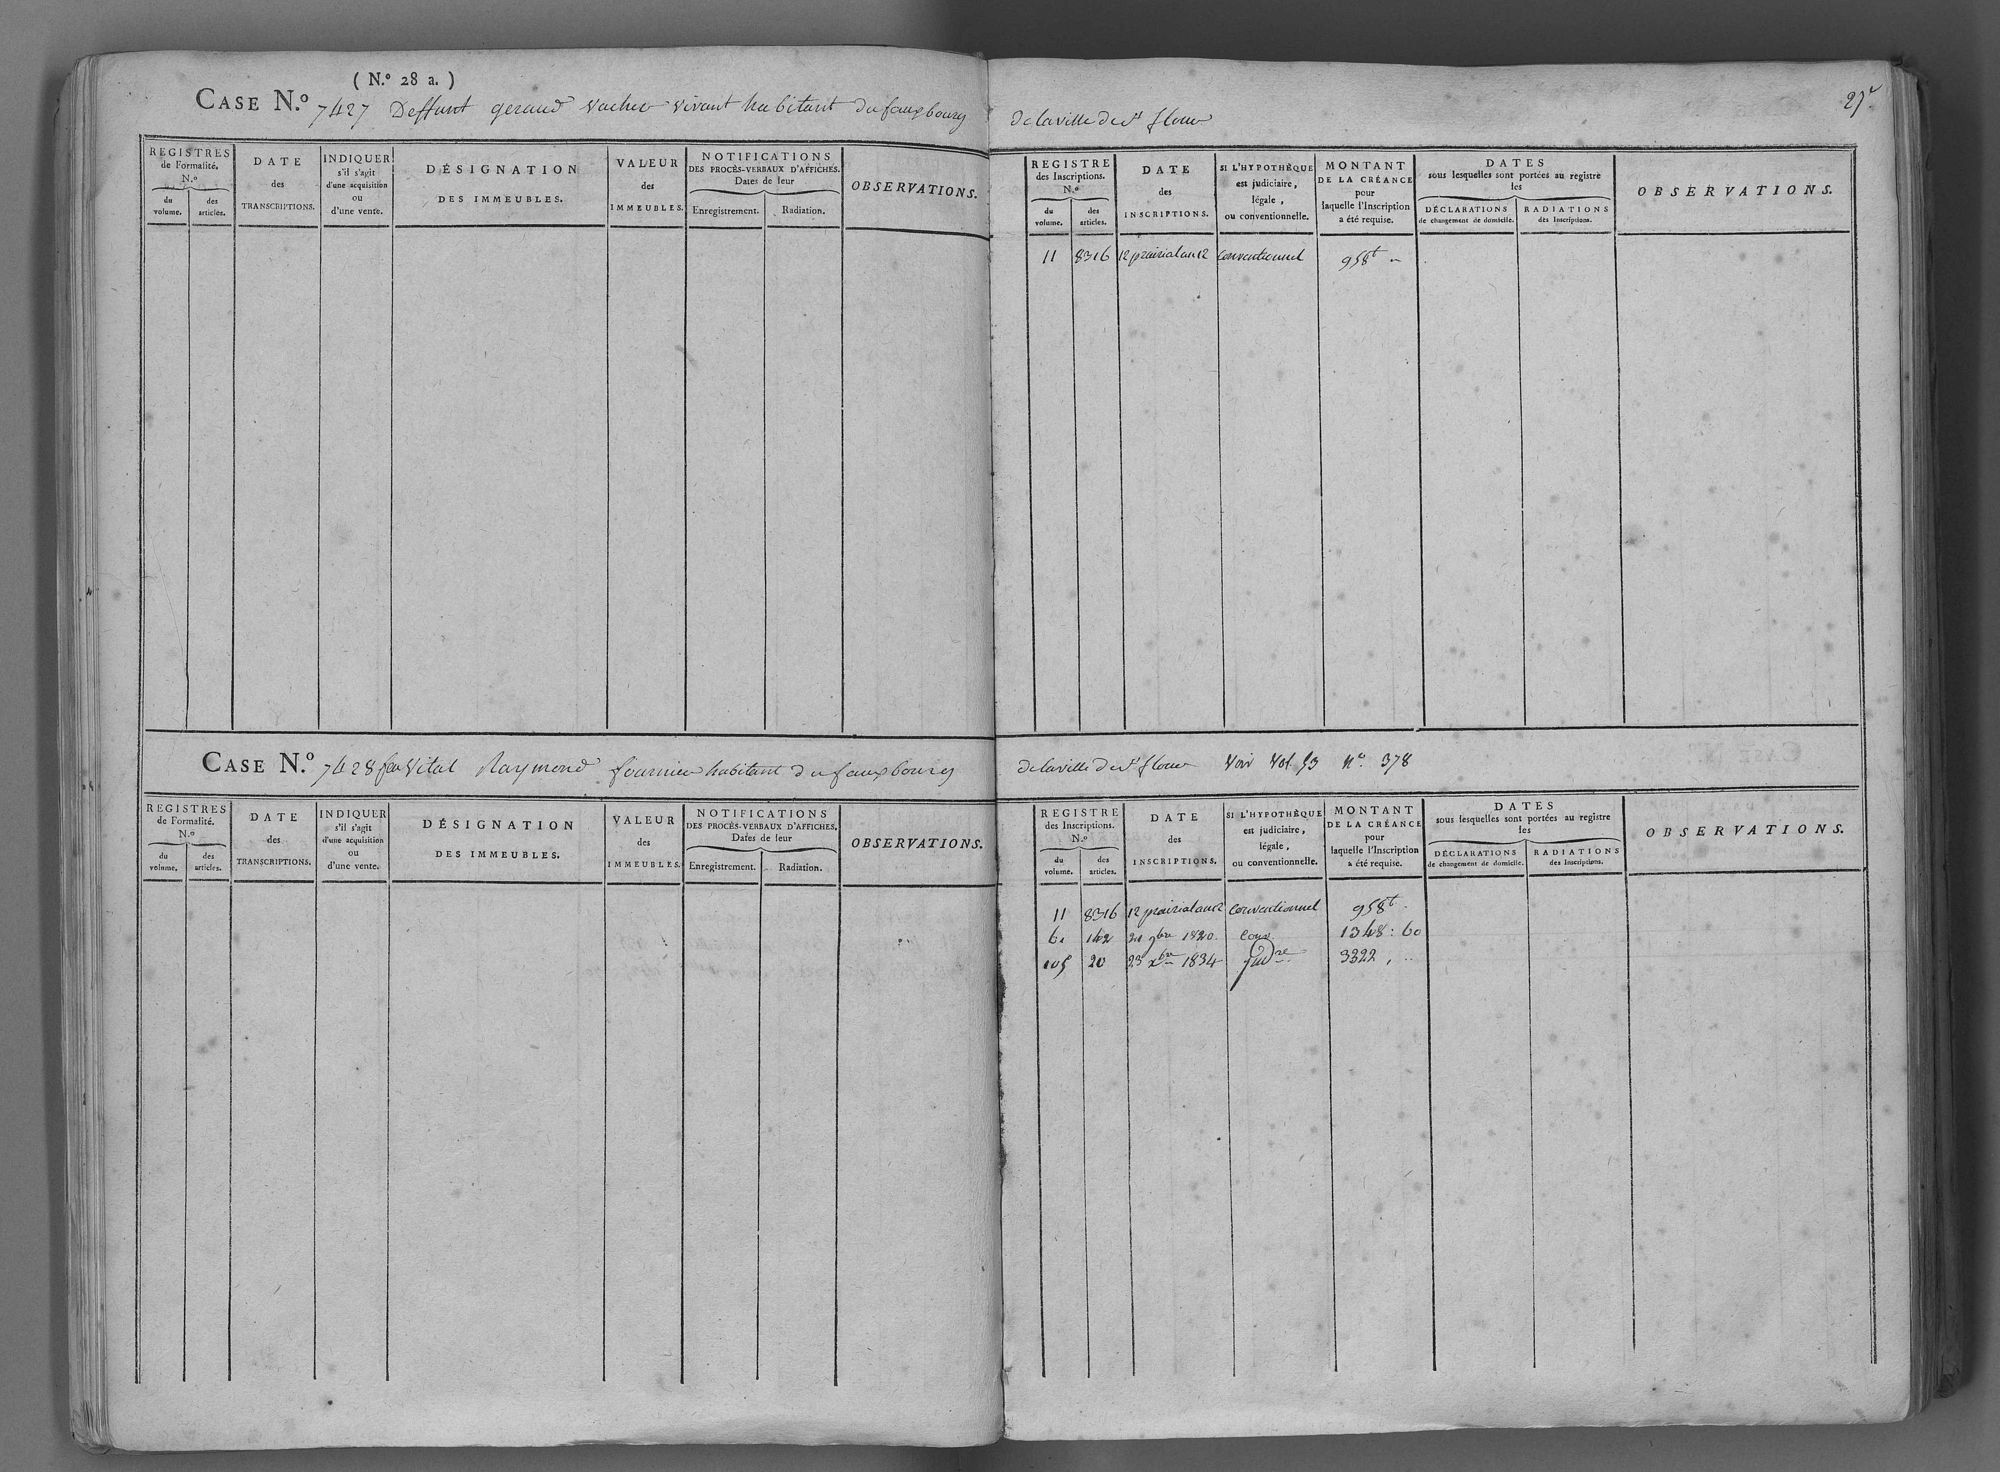 ( N.º 28 a. )
CASE N.º 7427. Deffunt geraud Vacher vivant habitant du fauxbourg de la ville de St flour
27
REGISTRES de Formalité. N.º
du volume.
des articles.
DATE des TRANSCRIPTIONS.
INDIQUER s'il s'agit d'une acquisition ou d'une vente.
DÉSIGNATION DES IMMEUBLES.
VALEUR des IMMEUBLES.
NOTIFICATIONS DES PROCÈS-VERBAUX D'AFFICHES. Dates de leur
Enregistrement.
Radiation.
OBSERVATIONS.
REGISTRE des Inscriptions. N.º
du volume.
des articles.
DATE des INSCRIPTIONS.
SI L'HYPOTHÈQUE est judiciaire, légale, ou conventionnelle.
MONTANT DE LA CRÉANCE pour laquelle l'Inscription a été requise.
DATES sous lesquelles sont portées au registre les
DÉCLARATIONS de changement de domicile.
RADIATIONS des Inscriptions.
OBSERVATIONS.
11 8316 12 prairial an 12 conventionnel 958t
CASE N.º 7428 Vital Raymond fournier habitant du fauxbourg de la ville de St flour Voir Vol 53 nº 378
REGISTRES de Formalité. N.º
du volume.
des articles.
DATE des TRANSCRIPTIONS.
INDIQUER s'il s'agit d'une acquisition ou d'une vente.
DÉSIGNATION DES IMMEUBLES.
VALEUR des IMMEUBLES.
NOTIFICATIONS DES PROCÈS-VERBAUX D'AFFICHES. Dates de leur
Enregistrement.
Radiation.
OBSERVATIONS.
REGISTRE des Inscriptions. N.º
du volume.
des articles.
DATE des INSCRIPTIONS.
SI L'HYPOTHÈQUE est judiciaire, légale, ou conventionnelle.
MONTANT DE LA CRÉANCE pour laquelle l'Inscription a été requise.
DATES sous lesquelles sont portées au registre les
DÉCLARATIONS de changement de domicile.
RADIATIONS des Inscriptions.
OBSERVATIONS.
11 8316 12 prairial an 12 conventionnel 958t
142 9bre 1820. conv 1348: 60
105 20 23 xbre 1834 judre 3322